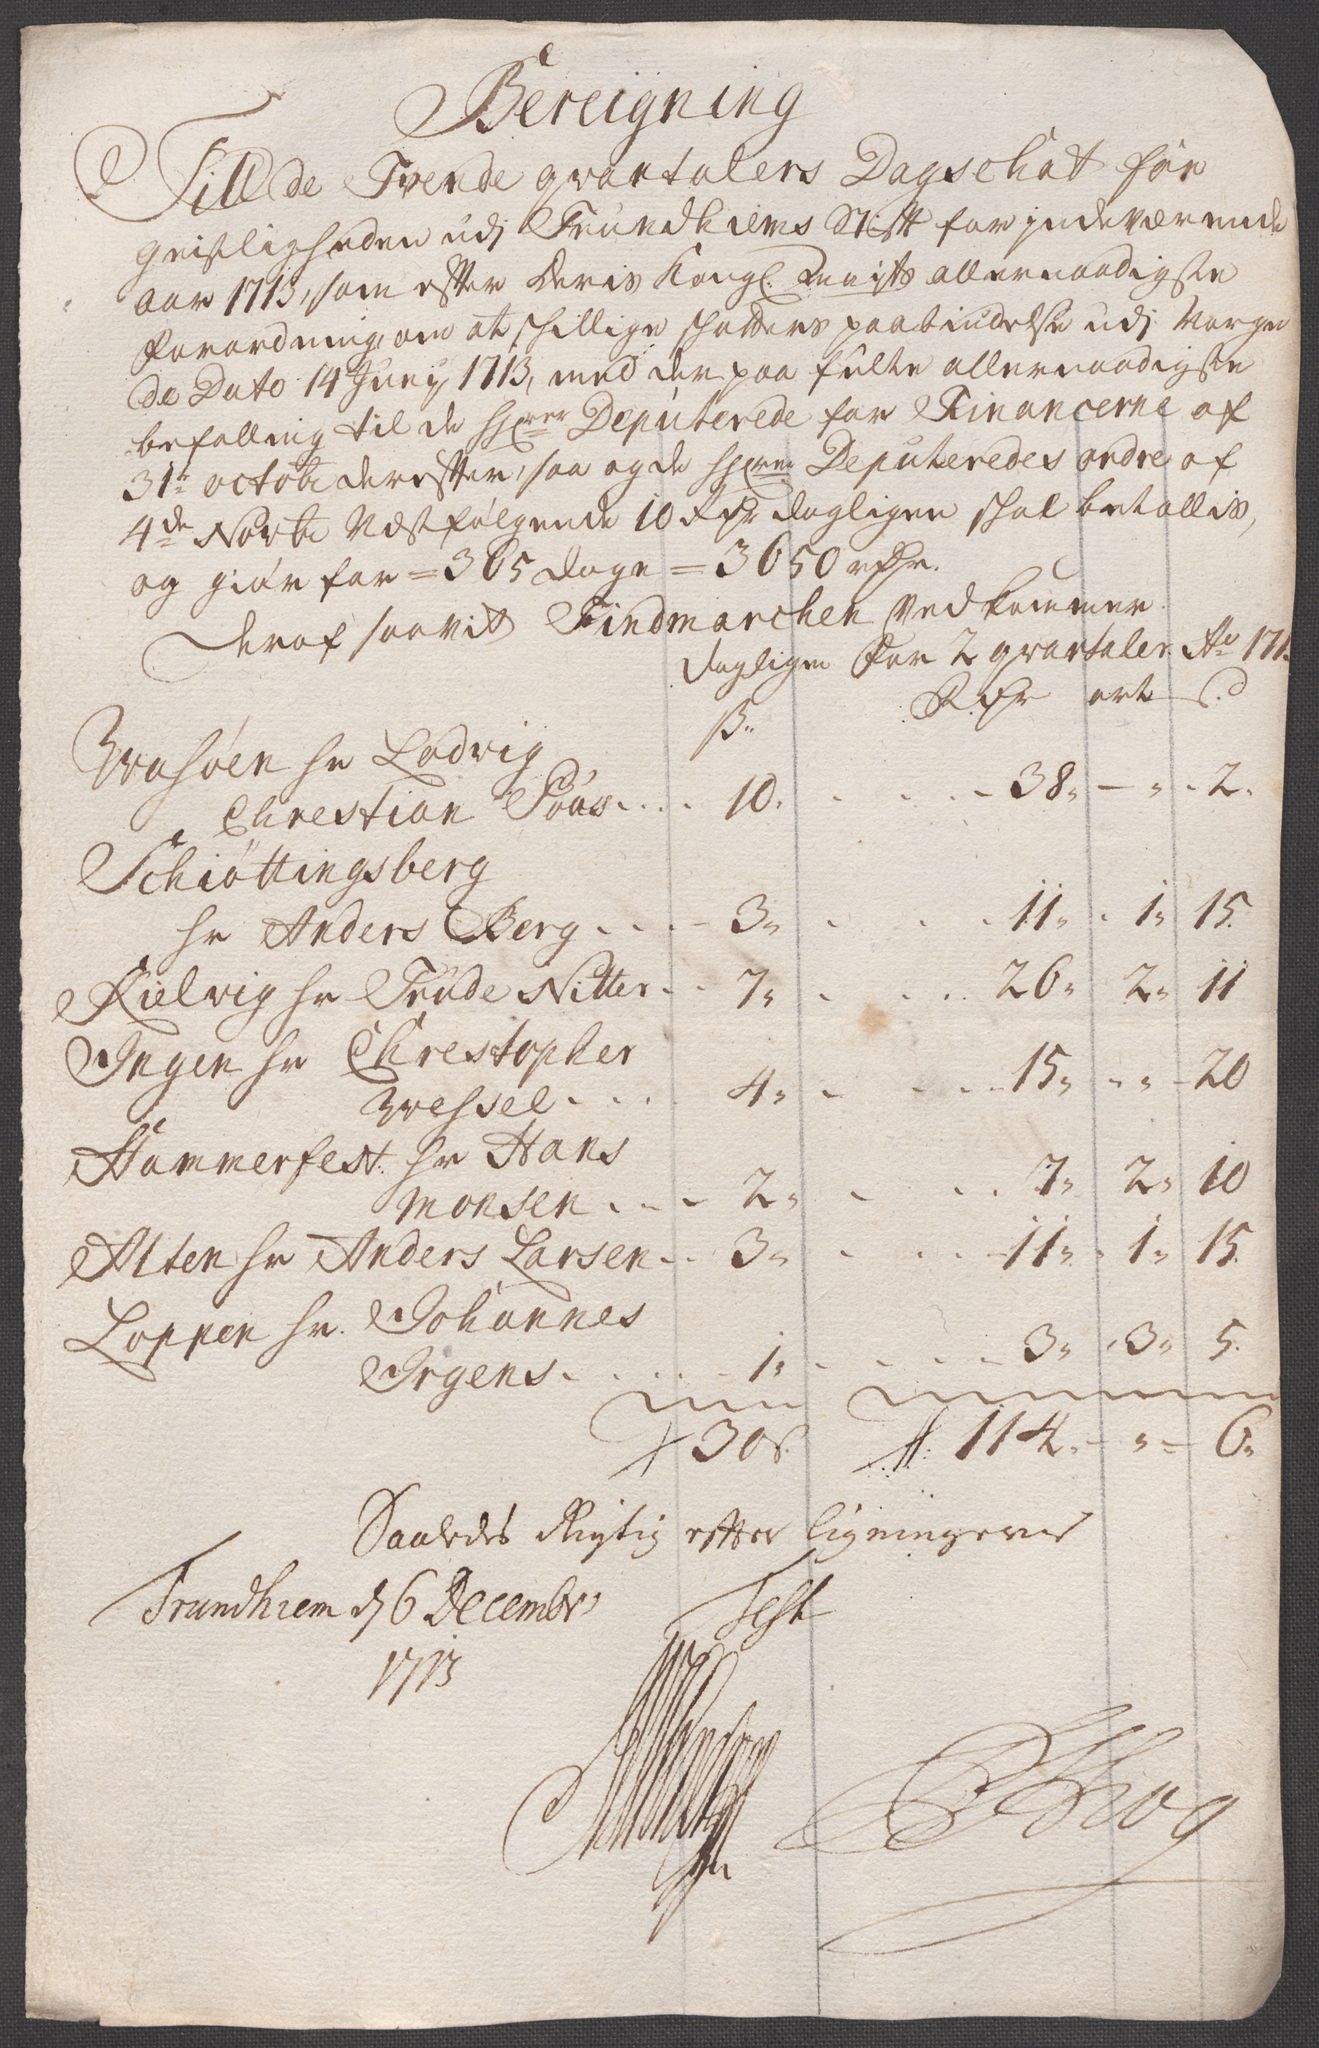 Bereigning
Till de Tvende qvartalers Dagschat for
geistligheden udj Trundhiems Stift for jndeværende
aar 1713, som efter Deris Kongl. Mayists allernaadigste
forordning, om atschillige schatters paabiudelse udj Norge
de Dato 14 Junij 1713, med der paa fulte allernaadigste
befalling til de hherrer Deputerede for Financerne af
31te octobr derefter, saa og de hherrer Deputeredes ordre af
4de Novbr Næstfølgende 10 Rdr dagligen schal betallis,
og giør for = 365 dage = 3650 rdr.
Deraf saavit Findmarchen Vedkommer
dagligen For 2 qvartaler Ao 171
ß. Rdr ort s.
Wasøen hr Lodvig
Chrestian Pøus. . . . 10. . . . . 38. — " - 2.
Schiøttingsberg
hr Anders Berg . . . . 3" . . . . 11" . 1" 15.
Kielvig hr Trude Nitter . . 7" . . . . 26" 2" 11
Ingen hr Chrestopher
Wessel . . . . 4" . . . . 15" . " - 20
Hammerfest hr Hans
Monsen . . . . 2" . . . . 7" 2" 10
Alten hr Anders Larsen . . 3" . . . . 11" . 1" 15.
Loppen hr. Johannes
Irgens . . . . . 1" . . . . . 3" . 3" 5.
30 ß. 114. - " - 6"
Saaledes Rigtig efter ligningerne
Trundhiem d 6 Decembr Test
1713